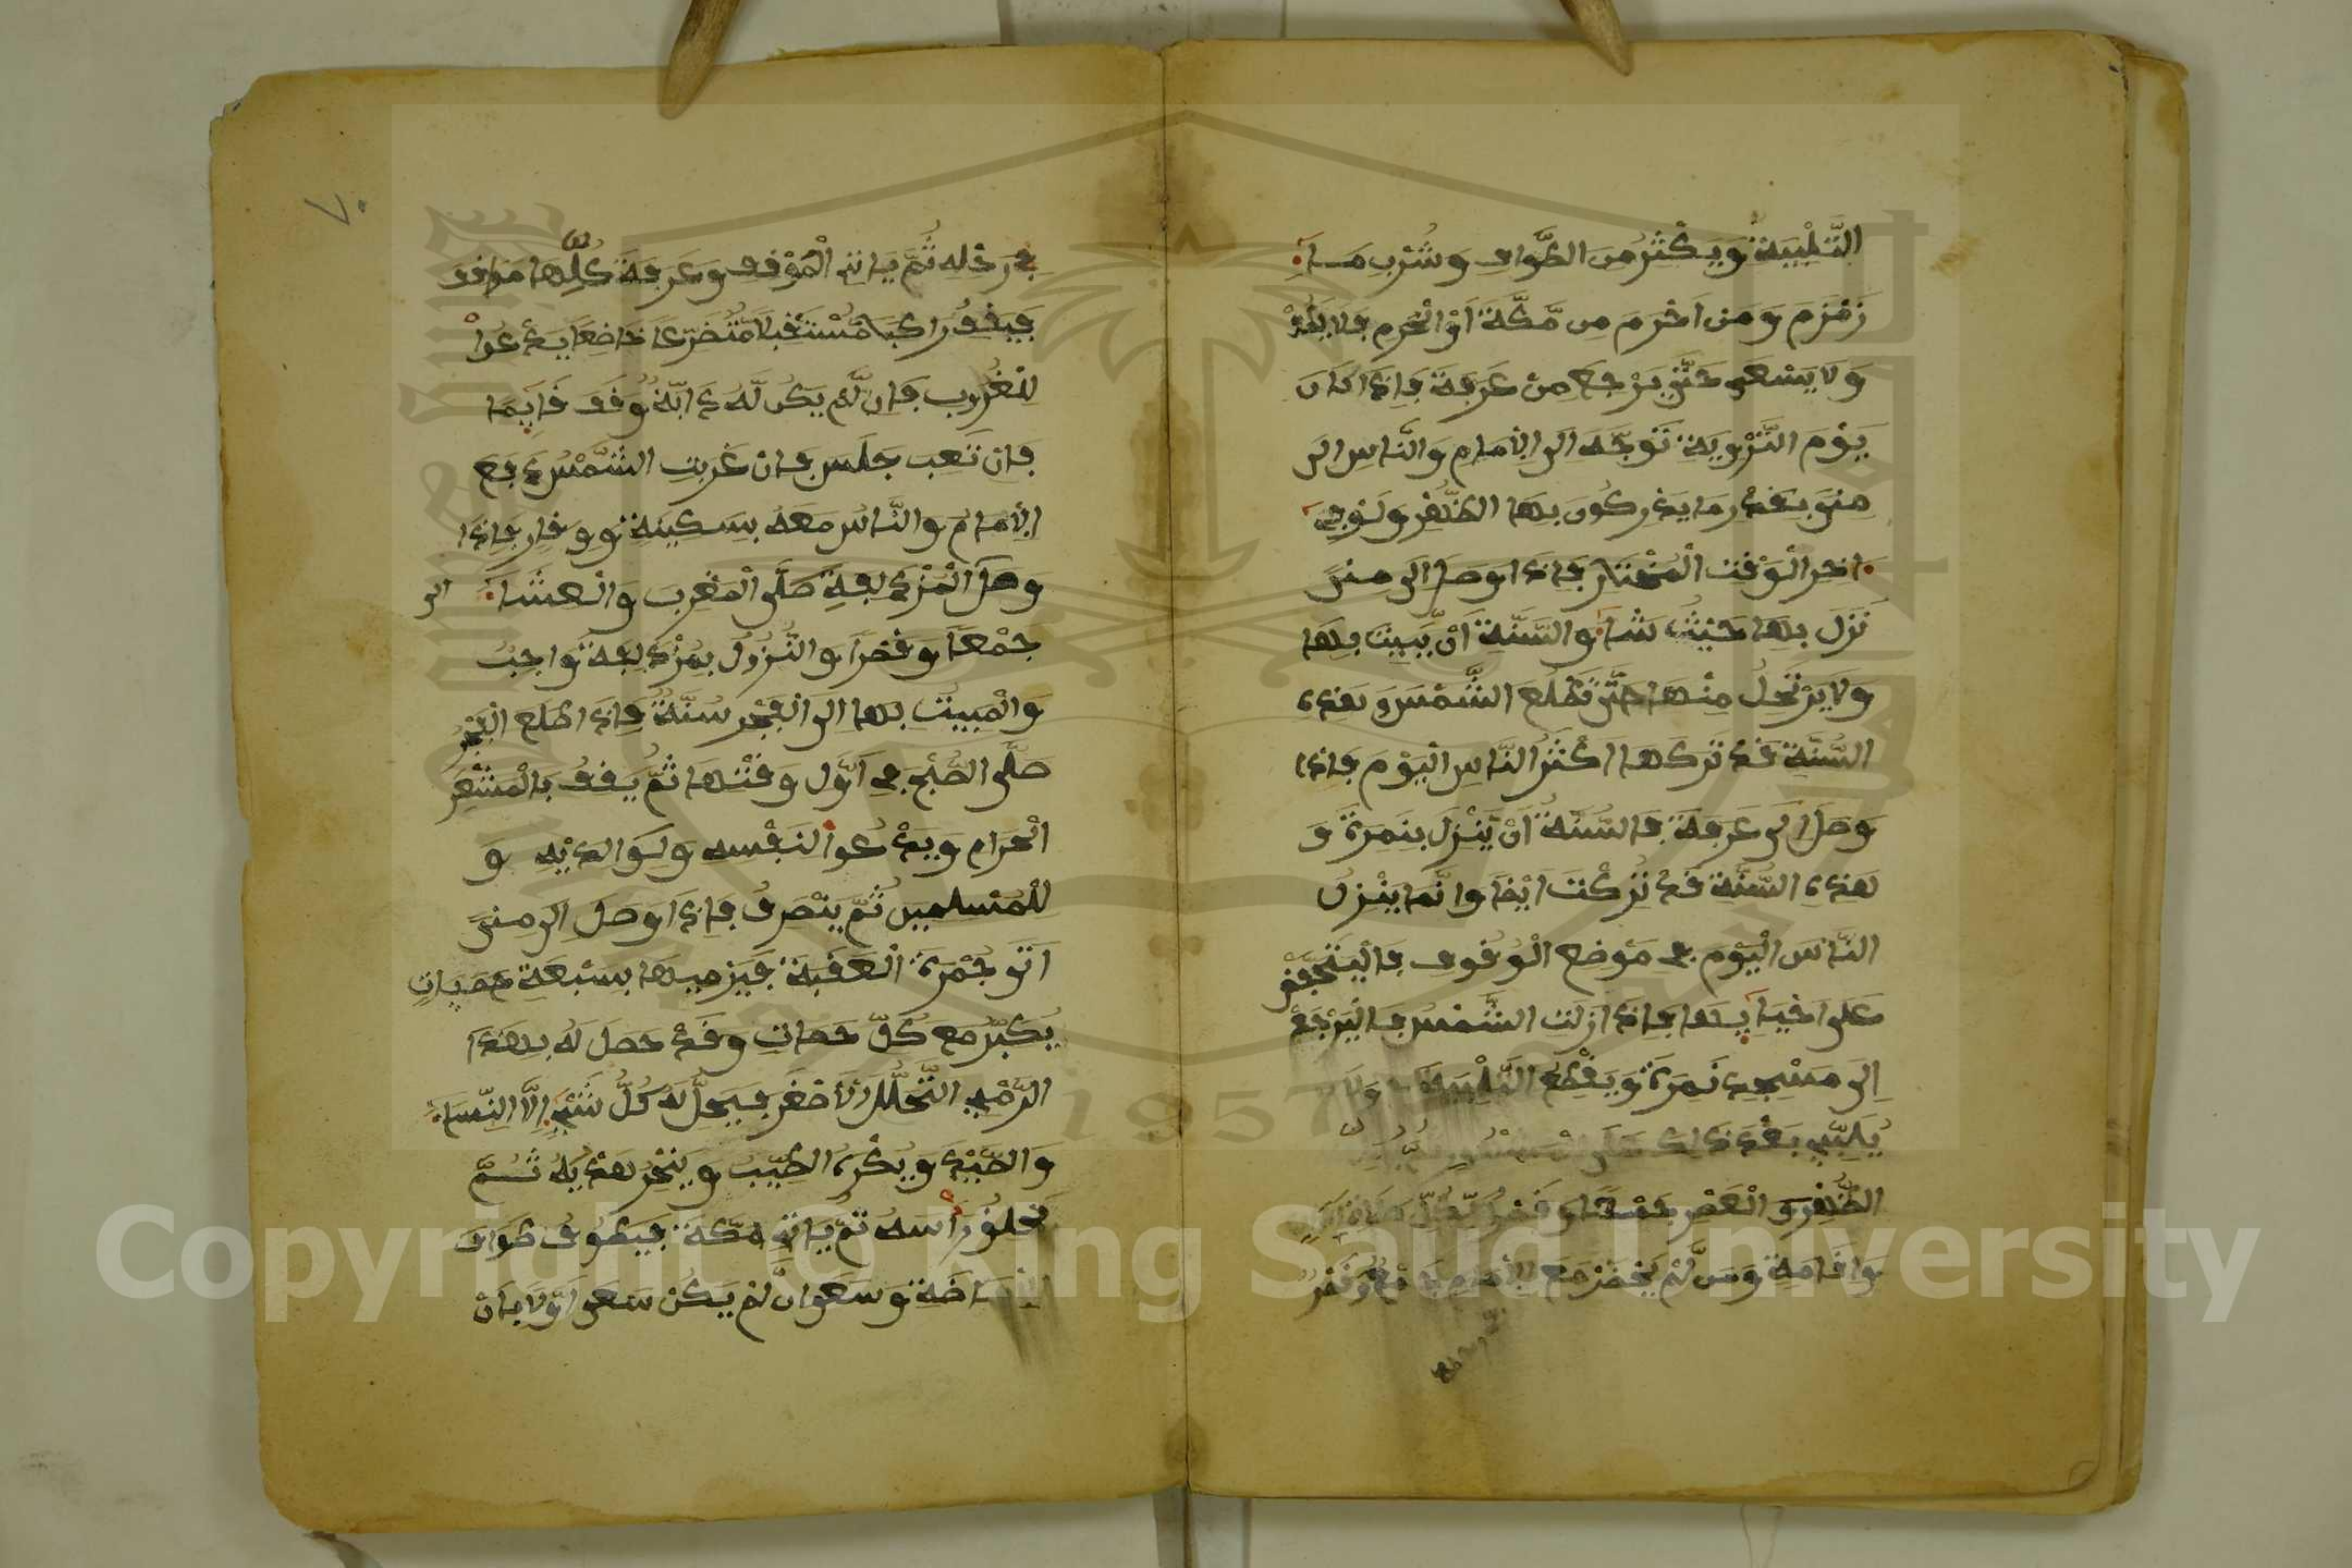 التَّلْبِيَةَ وَيُكْثِرُ مِنَ الطَّوَافِ وَشُرْبِ مَاءِ
زَمْزَمَ وَمَنْ اَحْرَمَ مِن مَّكَّةَ اَوْ الْحَرَمِ فَلَا يَطُفْ
وَلَا يَسْعَى حَتَّى يَرْجِعَ مِنْ عَرَفَةَ فَإِذَا كَانَ
يَوْمَ التَّرْوِيَةِ تَوَجَّهَ الى الاِمَامِ وَالنَّاسِ الى
مِنَى بِقَدْرِ مَا يُدْرِكُونَ بِهَا الظُّهْرَ وَلَوْ فِي
اخر الْوَقْتِ الْمُخْتَارِ فَإِذَا وصَل الى مِنىً
نَزَلَ بِهَا حَيْثُ شَاءَ وَالسُّنَّةُ اَنْ يَّبِيتَ بِهَا
وَلَا يَرْتَحِلُ مِنْهَا حَتَّى تَطْلُعَ الشَّمْسَ وَهَذِهِ
السُّنَّةِ قَدْ تَرَكَهَا اَكْثَرُ النَّاسِ الْيَوْمَ فَإِذَا
وَصَلَ الى عَرَفَةَ فَالسُّنَّةُ اَنْ يَّنْزِلَ بِنَمِرَةَ وَ
هَذِهِ السُّنَّة قَدْ تُرِكَتْ ايْضًا وَانَّمَا يَنْزِلُ
النَّاسَ الْيَوْم فى مَوْضِع الْوُقُوفِ فَالْيَتَحَفَّظْ
عَلَى احْيَايِهَا فَإِذَا زَلَت الشَّمْسُ فَالْيَرْجَعْ
إِلى مَسْجِدِ نَمِرَةَ وَيَقْطَعُ التَّلْبِيَةَ وَلَا
يُلَبِّي بَعْدَ ذَلِكَ
الظُّهْرَ وَالْعَصْرِ جَمْعًا وَقَصْرًا لِكُلِّ صَلَاةٍ اَذَانٍ
وَإِقَامَةٍ وَمَن لَّمْ يَحْضُرْ مَعَ الْأِمَامِ جَمَعَ وَقَصَرَ
فى رَحْلِهِ
٧٠
فى رَحْلِهِ ثُمَّ يَاتِي الْمَوْقِفَ وَعَرَفَةَ كُلِّهَا مَوْقِف
فَيَقِفُ رَاكِبًا مُسْتَقْبِلًا مُتَضَرِّعًا خَاضِعًا يَدْعُوا
لِلْغُرُوبِ فَإِن لَّمْ يَكُن لَّهُ دَابَّةٌ وَقَفَ قَايِمًا
فَإِنْ تَعِبَ جَلَسَ فَإِنْ غَرَبَتِ الشَّمْسُ دَفَعَ
الاِمَامُ وَالنَّاسُ مَعَهُ بِسَكِينَةٍ وَوَقَارٍ فَإِذَا
وَصَلَ الْمُزْدَلِفَةِ صَلَّى الْمَغْرِبَ وَالْعِشَاءَ الى
جَمْعًا وَقَصْرًا وَالنُّزُولُ بِمُزْدَلِفَةَ وَاجِبٌ
وَالْمَبِيتُ بِهَا الى الْفَجْر سُنَّةٌ فَإِذَا طَلع الْفَجْرُ
صَلَّى الصُّبْحَ فِي اَوَّلِ وَقْتِهَا ثُمَّ يَقِفُ بِالْمَشْعَرِ
الْحَرَامِ وَيَدْعُوا لنَفْسِهِ وَلِوَالِدَيْهِ وَ
لِلْمُسْلِمِينَ ثُمَّ يَنْصَرِفُ فَإِذَا وَصَلَ الى مِنىً
اَتَى جَمْرَةَ الْعَقَبَةَ فَيَرْمِيهَا بِسَبْعَةِ حَصَيَاتٍ
يُكَبِّرُ مَعَ كُلِّ حَصَاتٍ وَقَدْ حَصَلَ لَهُ بِهَذَا
الرَّمْيِ التَّحَلُّلُ الْأَصْغَرِ فَيَحِلُّ لَهُ كُلُّ شَيْءٍ إِلَّا النِّسَاءَ
وَالصَّيْدَ وَيُكْرَهُ الطِّيبُ وَيَنْحَرُ هَدْيَهُ ثُمَّ
يَحْلِقُ رَأْسَهُ ثُمَّ يَاتِي مَكَّةَ فَيَطُوفُ طَوَافَ
الْإِفَاضَةَ وَيَسْعَى ان لَّمْ يَكُنْ سَعَى اَوَّلًا بِاَنْ